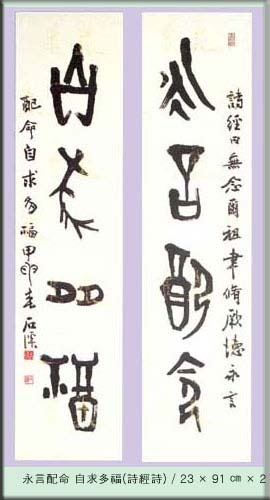 詩經曰無念爾祖聿脩厥德永言
永言配命
自求多福
配命自求多福甲申春石溪
永言配命 自求多福(詩經詩) / 23 × 91 ㎝ × 2